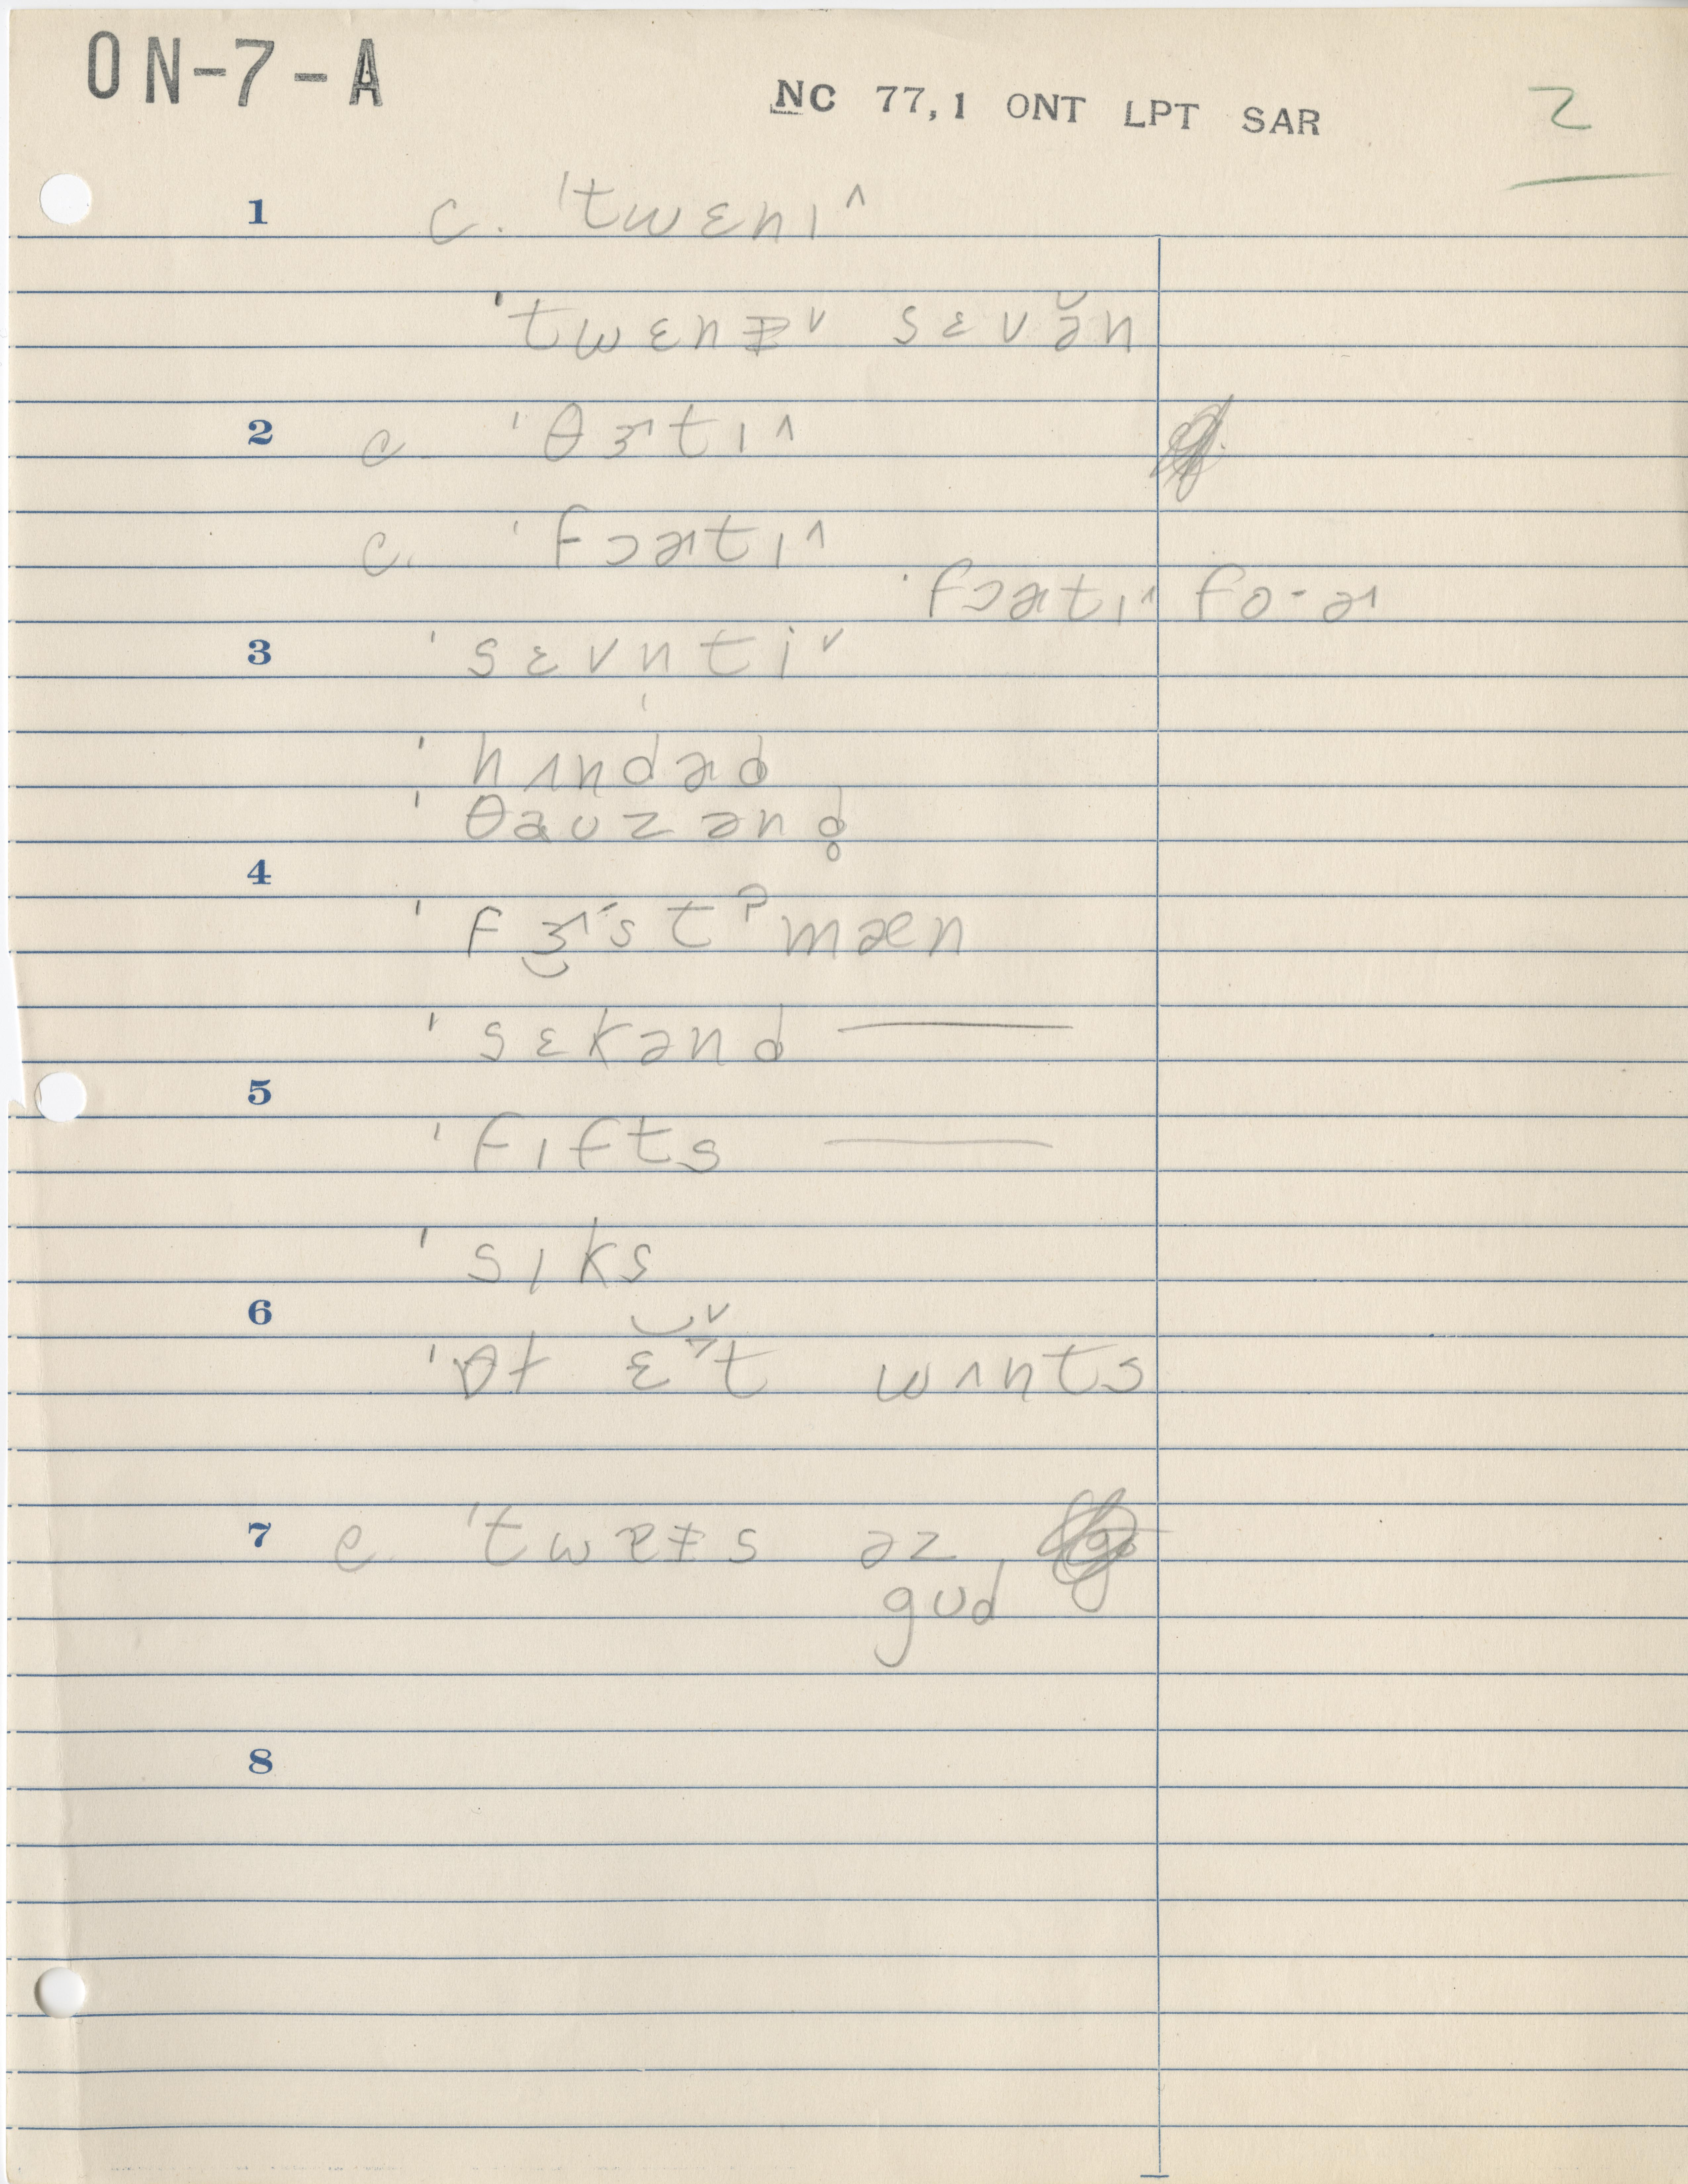 ON-7-A
NC 77,1 ONT LPT SAR
2
1 c. ˈtwɛnɪ^
ˈtwɛnɪ̵ˇ sɛvə̆n
2 c. ˈθɝtɪ^
c. ˈfɔɚtɪ^
ˈfɔɚtɪ^ fo·ɚ
3 ˈsɛvn̩tiˇ
ˈhʌndɚd
ˈθauzənd̥
4 ˈfɝst mæn
ˈsɛkənd —
5 ˈfɪfts —
ˈsɪks
6 wʌnts
7 c. əz
gud
8